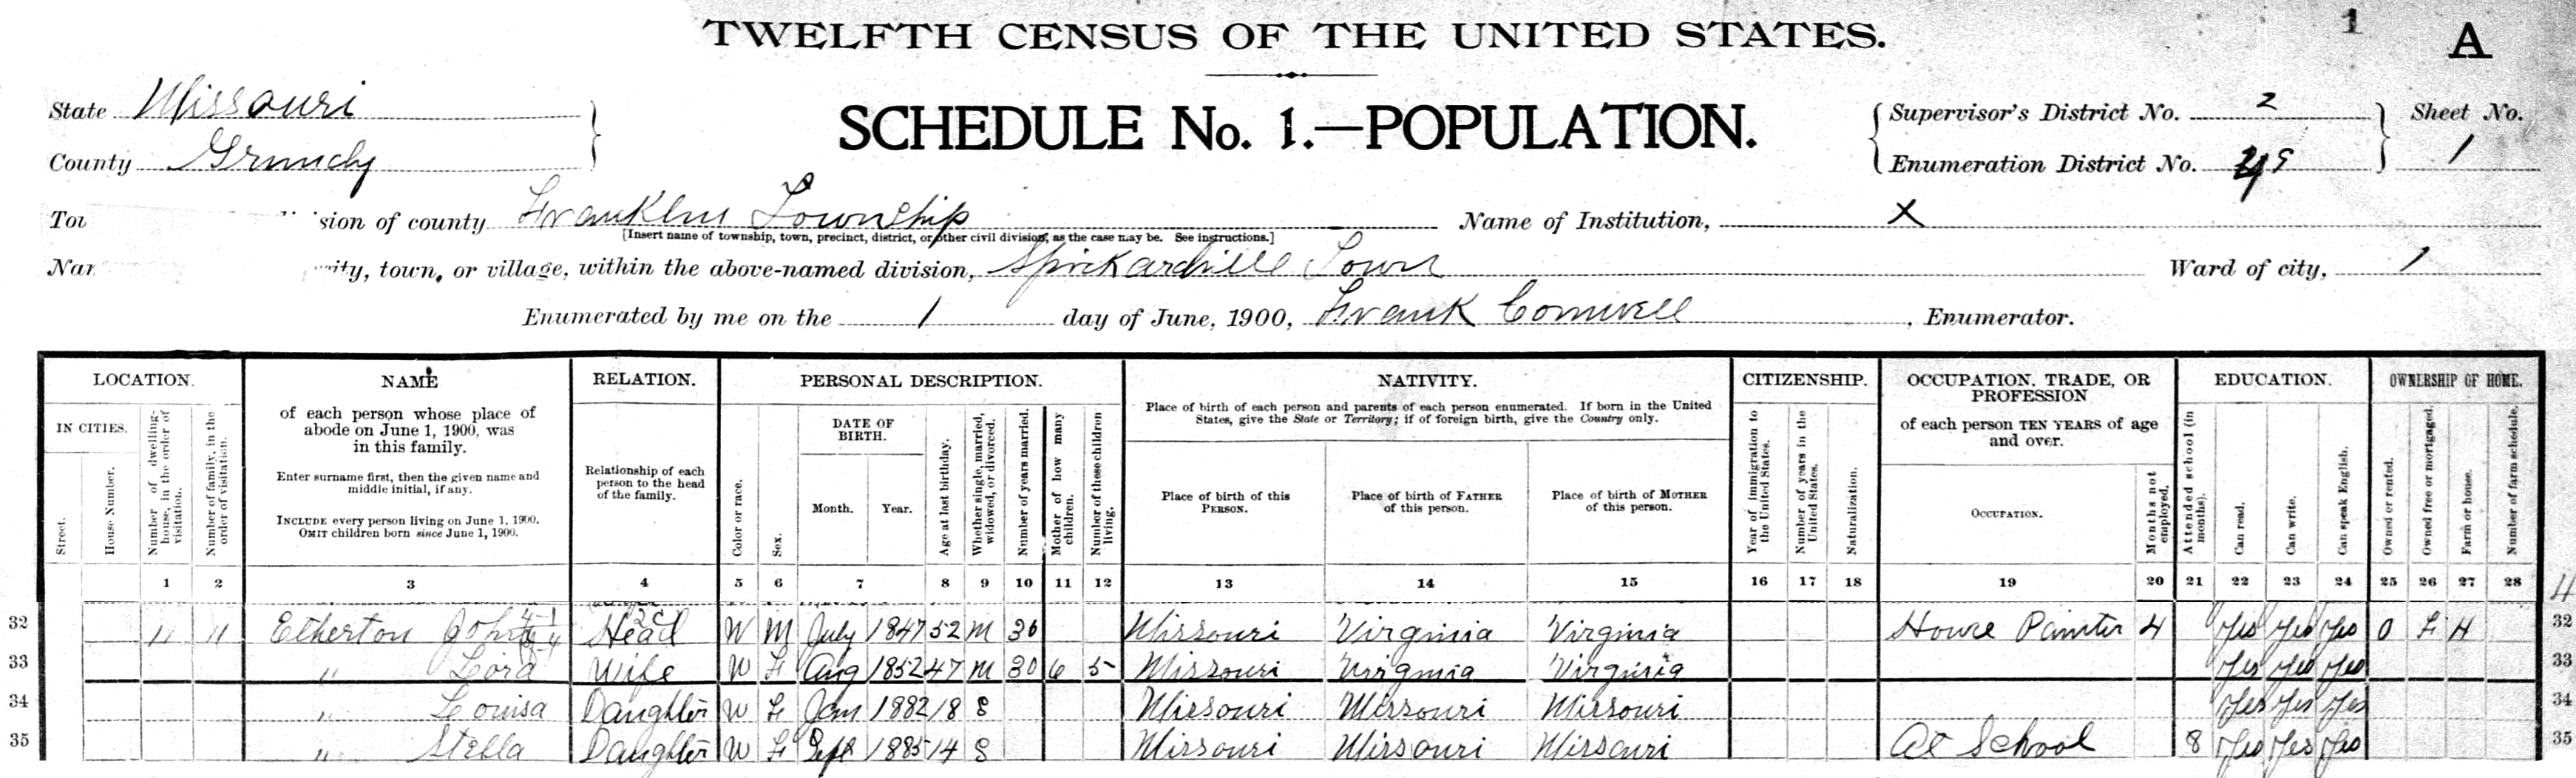 TWELFTH CENSUS OF THE UNITED STATES.
1 A
State Missouri
County Grundy
SCHEDULE No. 1.—POPULATION.
Supervisor's District No. 2
Enumeration District No.
Sheet No.
1
sion of county Franklin Township
[Insert name of township, town, precinct, district, or other civil division, as the case may be. See instructions.]
Name of Institution, X
ity, town, or village, within the above-named division, Spickardville Town
Ward of city, 1
Enumerated by me on the 1 day of June, 1900, Frank Cornwell, Enumerator.
LOCATION.
IN CITIES.
Street.
House Number.
Number of dwelling-house, in the order of visitation.
Number of family, in the order of visitation.
NAME
of each person whose place of
abode on June 1, 1900, was
in this family.
Enter surname first, then the given name and
middle initial, if any.
INCLUDE every person living on June 1, 1900.
OMIT children born since June 1, 1900.
RELATION.
Relationship of each
person to the head
of the family.
PERSONAL DESCRIPTION.
Color or race.
Sex.
DATE OF
BIRTH.
Month.
Year.
Age at last birthday.
Whether single, married, widowed, or divorced.
Number of years married.
Mother of how many children.
Number of these children living.
NATIVITY.
Place of birth of each person and parents of each person enumerated. If born in the United
States, give the State or Territory; if of foreign birth, give the Country only.
Place of birth of this
PERSON.
Place of birth of FATHER
of this person.
Place of birth of MOTHER
of this person.
CITIZENSHIP.
Year of immigration to the United States.
Number of years in the United States.
Naturalization.
OCCUPATION, TRADE, OR
PROFESSION
of each person TEN YEARS of age
and over.
OCCUPATION.
Months not employed.
EDUCATION.
Attended school (in months).
Can read.
Can write.
Can speak English.
OWNERSHIP OF HOME.
Owned or rented.
Owned free or mortgaged.
Farm or house.
Number of farm schedule.
1 2 3 4 5 6 7 8 9 10 11 12 13 14 15 16 17 18 19 20 21 22 23 24 25 26 27 28
32 " " Etherton John Head W M July 1847 52 M 30 Missouri Virginia Virginia House Painter 4 Yes Yes Yes O F H 32
33 " Lora Wife W F Aug 1852 47 M 30 6 5 Missouri Virginia Virginia Yes Yes Yes 33
34 " Louisa Daughter W F Jan 1882 18 S Missouri Missouri Missouri Yes Yes Yes 34
35 " Stella Daughter W F Sept 1885 14 S Missouri Missouri Missouri At School 8 Yes Yes Yes 35